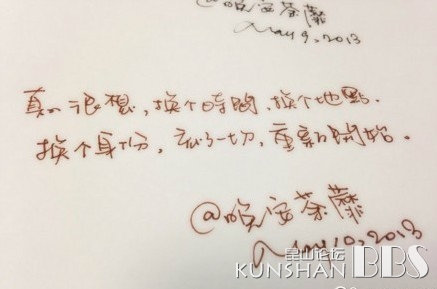 @晚安荼蘼
May 9, 2013
真的很想,换个時間,换个地點.
换个身份,忘了一切,重新開始.
@晚安荼蘼
May 10, 2013
昆山论坛
KUNSHAN BBS